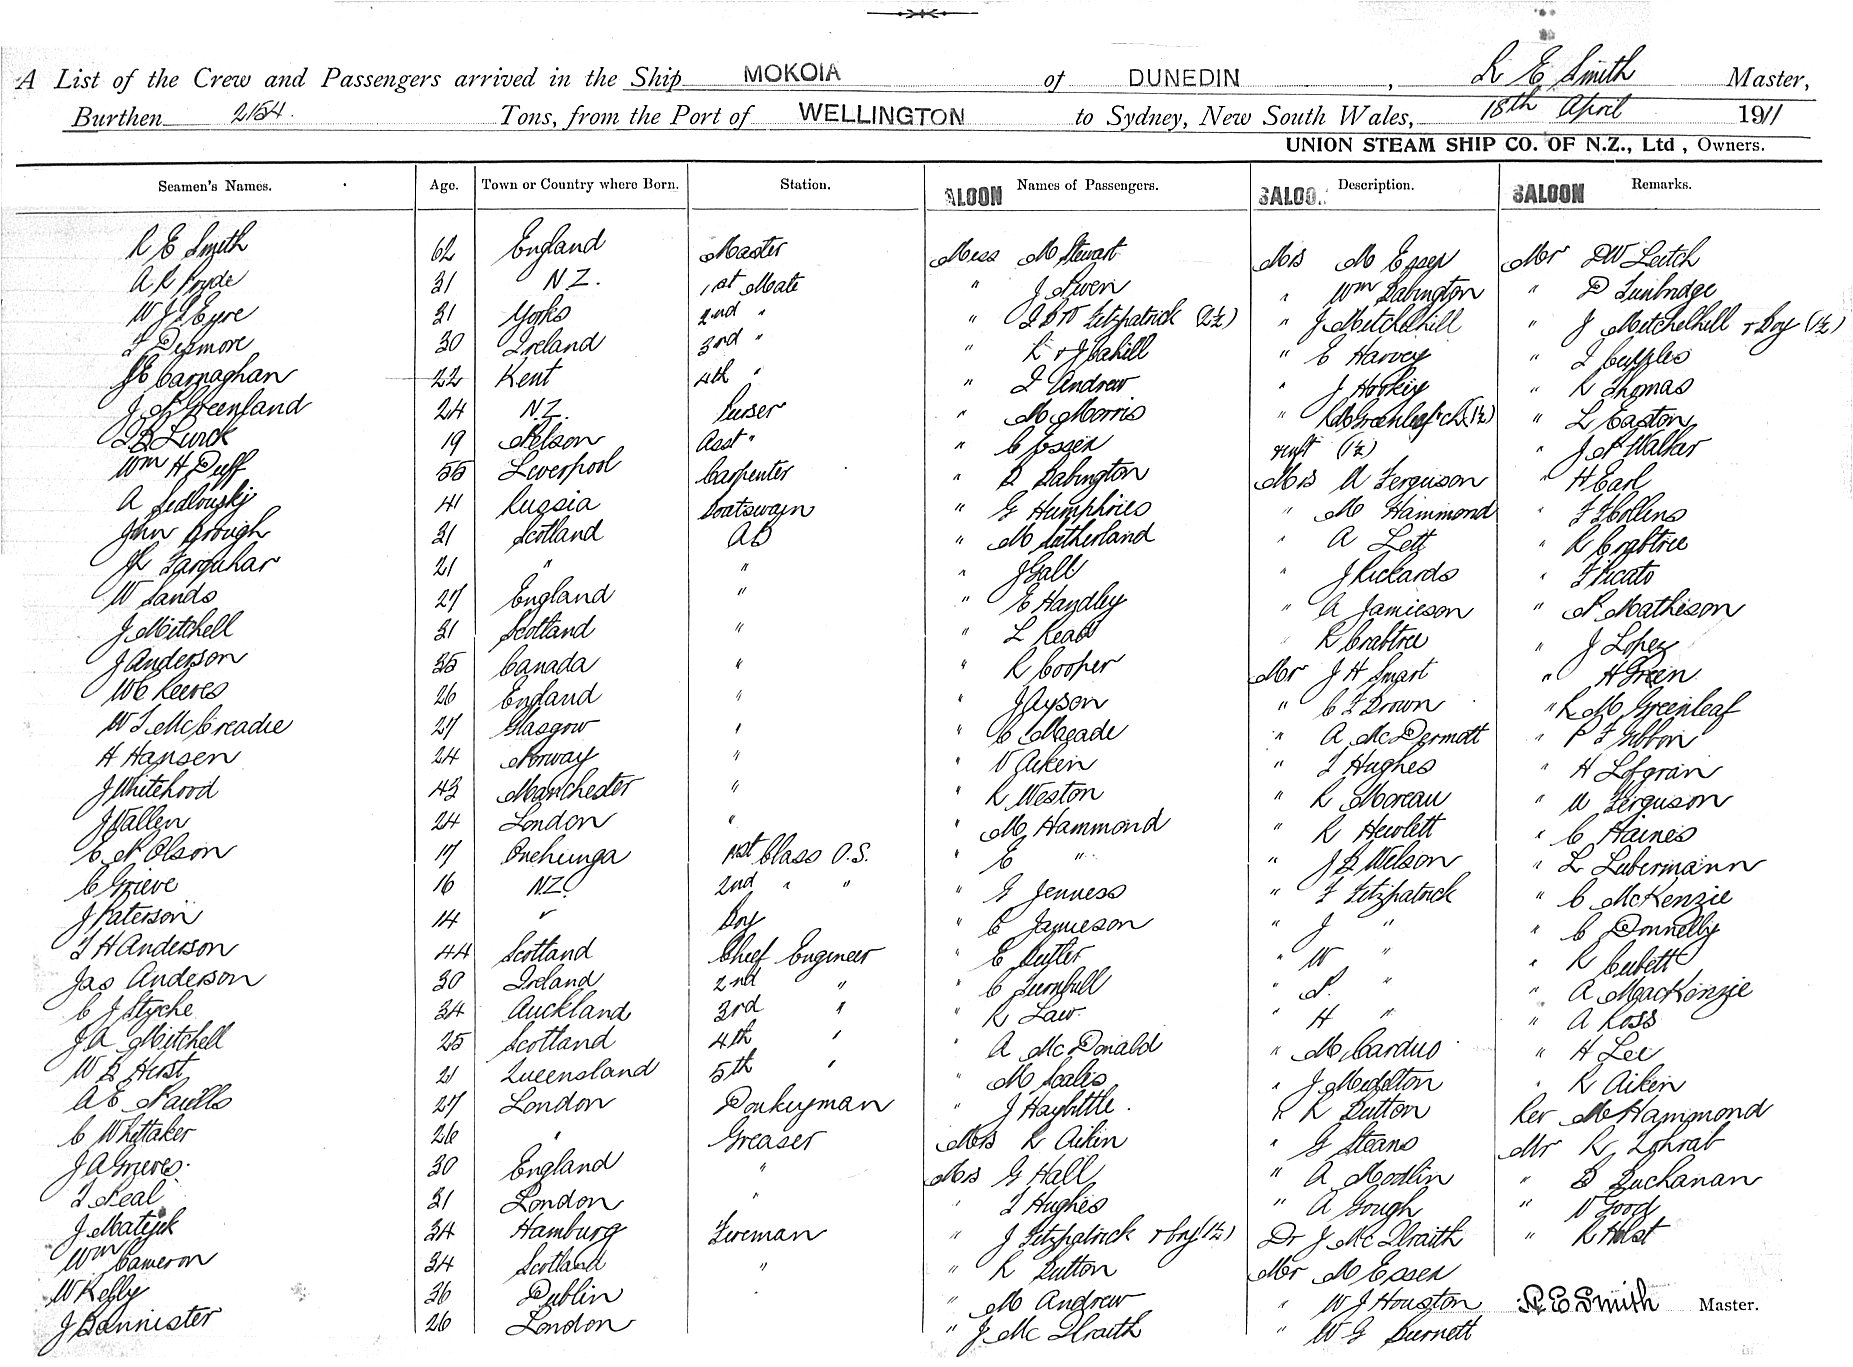 A List of the Crew and Passengers arrived in the Ship MOKOIA of DUNEDIN, R E Smith Master,
Burthen 2154 Tons, from the Port of WELLINGTON to Sydney, New South Wales, 18th April 1911
UNION STEAM SHIP CO. OF N.Z., Ltd, Owners.
Seamen's Names. Age. Town or Country where Born. Station. ALOON Names of Passengers. SALOO Description. SALOON Remarks.
R E Smith 62 England Master Miss M Stewart Mrs M Essen Mr DW Leitch
A R Pryde 31 N.Z. 1st Mate " J " Wm Babington " D Tunbridge
W J Eyre 31 Yorks 2nd " " Fitzpatrick (2½) " J Mitchelhill " J Mitchelhill + Boy (1½)
30 Ireland 3rd " " R + J Cahill " E Harvey "
J E Carnaghan 22 Kent 4th " " Andrew " J " R Thomas
J Greenland 24 N.Z. Purser " M Morris " R M Greenleaf + ch (1½) " L Easton
19 Nelson Asst " " C Essen (1½) " J Walker
Wm H Duff 55 Liverpool Carpenter " Babington Mrs Ferguson " H Earl
A 41 Russia Boatswain " G Humphries " M Hammond " Hollins
John Brough 31 Scotland AB " M Sutherland " A Lett " R Crabtree
Farquhar 21 " " " J Gall " J Rickards " Picato
W Sands 27 England " " E Handley " A Jamieson " Matheson
J Mitchell 31 Scotland " " L " R Crabtree " J Lopez
J Anderson 35 Canada " " R Cooper Mr J H Smart " H Green
W C Reeves 26 England " " J Ayson " C Brown " R M Greenleaf
W McCreadie 27 Glasgow " " C " A McDermott " Gibbon
H Hansen 24 Norway " " Aiken " Hughes " H Lofgran
J Whitehood 43 Manchester " " R Weston " R Moreau " Ferguson
J Wallen 24 London " " M Hammond " R Hewlett " C Haines
Olson 17 Onehunga 1st Class O.S. " E " " J " L Lubermann
C Grieve 16 N.Z. 2nd " " " G Jenness " Fitzpatrick " C McKenzie
J Paterson 14 " Boy " C Jamieson " J " " C Donnelly
H Anderson 44 Scotland Chief Engineer " E Butler " W " " R
Jas Anderson 30 Ireland 2nd " " C Turnbull " " " A MacKenzie
C J Styche 34 Auckland 3rd " " R Law " H " " A Ross
J A Mitchell 25 Scotland 4th " " A McDonald " M Carduo " H Lee
W Hirst 21 Queensland 5th " " M " J " R Aikin
A E 27 London Donkeyman " J Haybittle " R Dutton Rev M Hammond
C Whittaker 26 " Greaser Mrs R Aikin " G Steans Mr R
J A Grieves 30 England " Mrs G Hall " A Modlin " Buchanan
31 London " " Hughes " A Gough " Good
J 34 Hamburg Fireman " J Fitzpatrick + boy (1½) Dr J McIlraith " R Holst
Wm Cameron 34 Scotland " " R Dutton Mr M Essen
W Kelly 36 Dublin " M Andrew " W J Houston R E Smith Master.
J Bannister 26 London " J McIlraith " W G Burnett